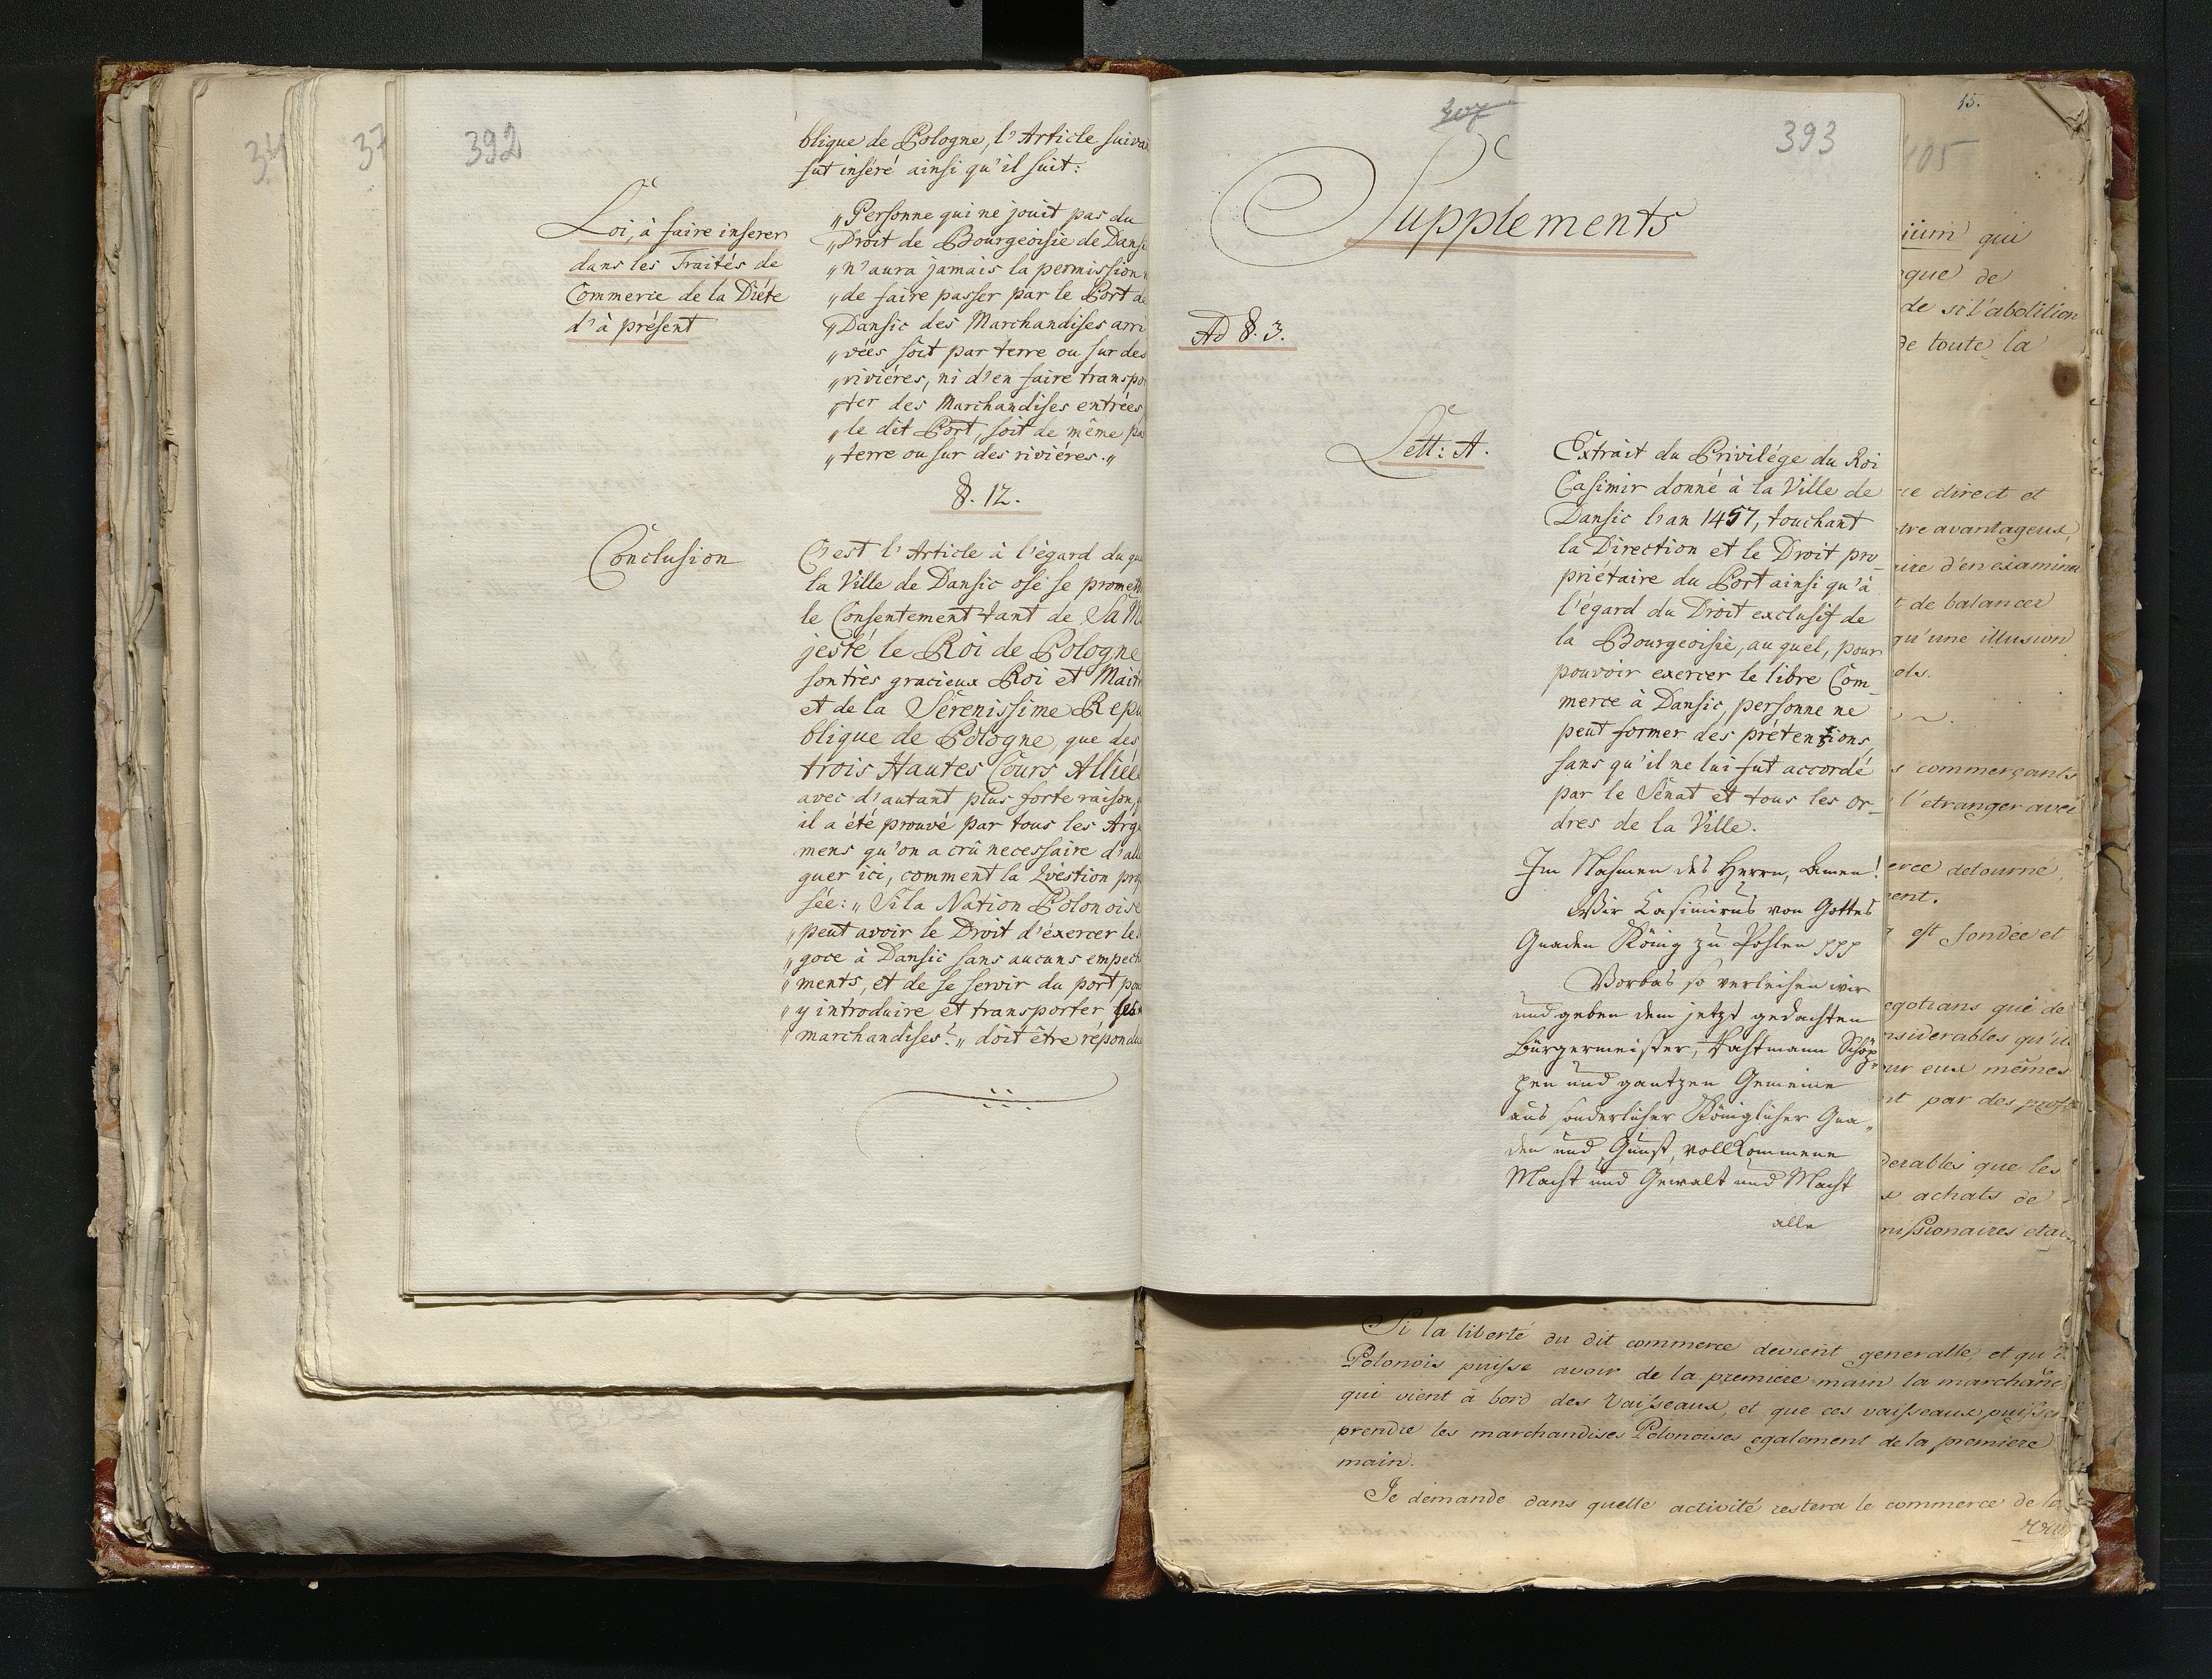 34
37
392
blique de Pologne, l'Article suiva
fut inséré ainsi qu'il suit:
Loi, à faire inserer
dans les Traités de
Commerce de la Diéte
d'à présent
„Personne qui ne jouit pas du
„Droit de Bourgeoisie de Dans
„n'aura jamais la permission
„de faire passer par le Port de
„Dansic des Marchandises arri
„vées soit par terre ou sur des
„riviéres, ni d'en faire transpo
„ter des Marchandises entrées
„le dit Port, soit de même pa
„terre ou sur des riviéres.„
§. 12.
Conclusion
C'est l'Article à l'égard du que
la Ville de Dansic ose se promett
le Consentement tant de Sa Ma
jesté le Roi de Pologne
son très gracieux Roi et Maitr
et de la Sérenissime Repu
blique de Pologne, que des
trois Hautes Cours Alliée
avec d'autant plus forte raison,
il a été prouvé par tous les Argu
mens qu'on a crû necessaire d'all
guer ici, comment la Qvestion prop
sée: „Si la Nation Polonoise
„peut avoir le Droit d'éxercer le
„goce à Dansic sans aucuns empech
„ments, et de se servir du port pou
„y introduire et transporter ses
„marchandises?„ doit être répondu
207
393
Supplements
Ad §. 3.
Lett: A.
Extrait du Privilége du Roi
Casimir donné à la Ville de
Dansic l'an 1457, touchant
la Direction et le Droit pro-
priétaire du Port ainsi qu'à
l'égard du Droit exclusif de
la Bourgeoisie, au quel, pour
pouvoir exercer le libre Com-
merce à Dansic, personne ne
peut former des prétentions
sans qu'il ne lui fut accordé
par le Sénat et tous les or-
dres de la Ville.
Im Nahmen des Herrn, Amen!
Wir Casimirus von Gottes
Gnaden König zu Pohlen ppp
Vorbas so verleihen wir
und geben dem jetzt gedachten
Bürgermeister, Rathmann Schöp-
pen und gantzen Gemeine
aus sonderlicher Königlicher Gna-
den und Gunst, vollkommene
Macht und Gewalt und Macht
alle
15.
405
ium qui
que de
de si l'abolition
de toute la
ce direct et
tre avantageux,
ire d'en examiner
t de balancer
qu'une illusion
els.
s commerçants
l'etranger avec
erce detourné,
ent.
est fondée et
egotians que de
nsiderables qu'il
ur eux mêmes
nt par des prof
derables que les
x achats de
missionaires et a
Si la liberté du dit commerce devient generalle, et qu'i
Polonois puisse avoir de la premiere main la marchand
qui vient à bord des Vaisseaux, et que ces vaisseaux puisse
prendre les marchandises Polonoises egalement de la premiere
main.
Je demande dans quelle activité restera le commerce de la